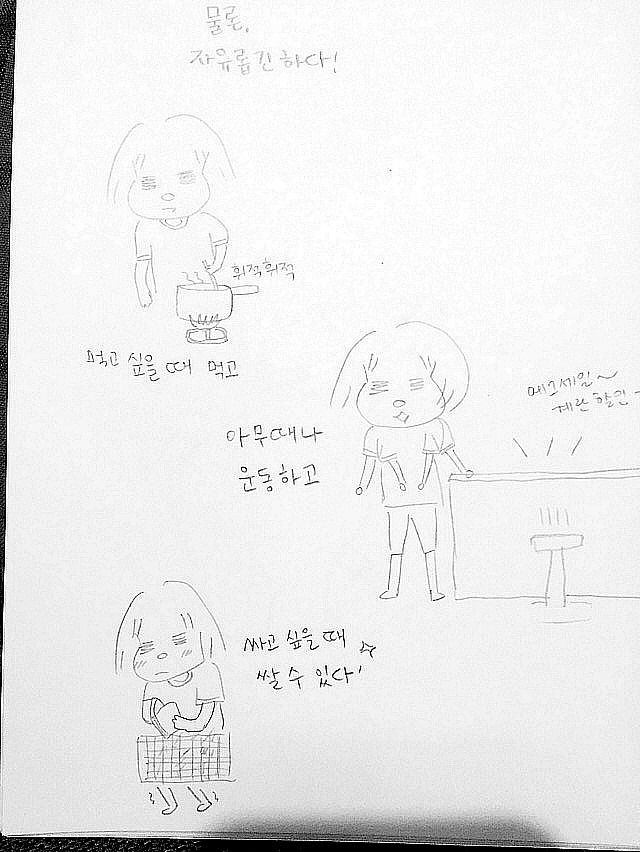 물론,
자유롭긴 하다!
휘적휘적
먹고 싶을 때 먹고
메그세일~
계란 할인~
아무때나
운동하고
싸고 싶을 때
쌀 수 있다!